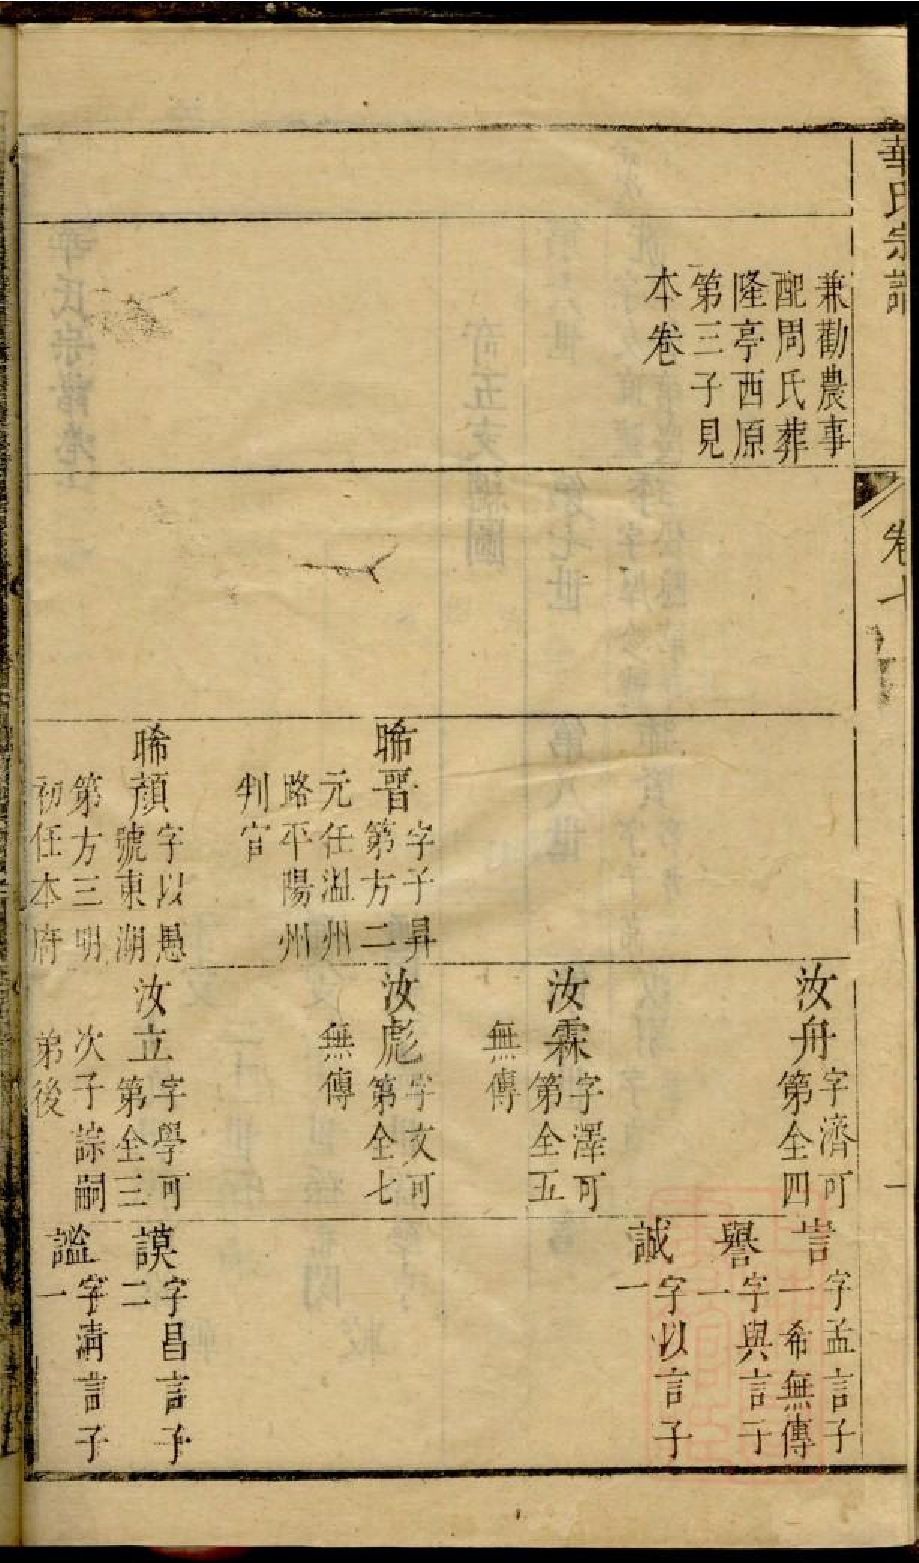 華氏宗譜
卷七
一
兼勸農事
配周氏葬
隆亭西原
第三子見
本卷
晞晋
字子昇
第方二
元任溫州
路平陽州
判官
晞顔
字以愚
號東湖
第方三明
初任本府
汝舟
字濟可
第全四
汝霖
字澤可
第全五
無傳
汝彪
字文可
第全七
無傳
汝立
字學可
第全三
次子諒嗣
弟後
字孟言子
一希無傳
譽
字與言子
一
誠
字以言子
一
謨
字昌言子
二
謐
字淸言子
一